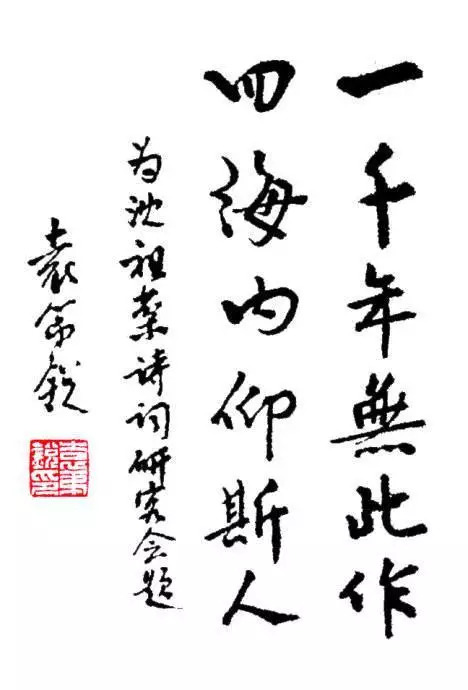 一千年無此作
四海内仰斯人
为沈祖棻诗词研究会题
袁第锐
袁第銳印